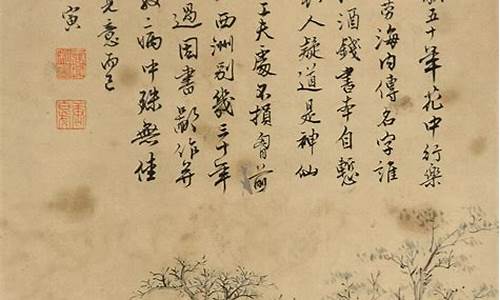 五十年花中行樂
勞海内傳名字誰
酒錢書本自慙
人疑道是神仙
工夫處不損胷前
西洲别幾三十年
過因書鄙作并
教病中殊無佳
見意而已
寅